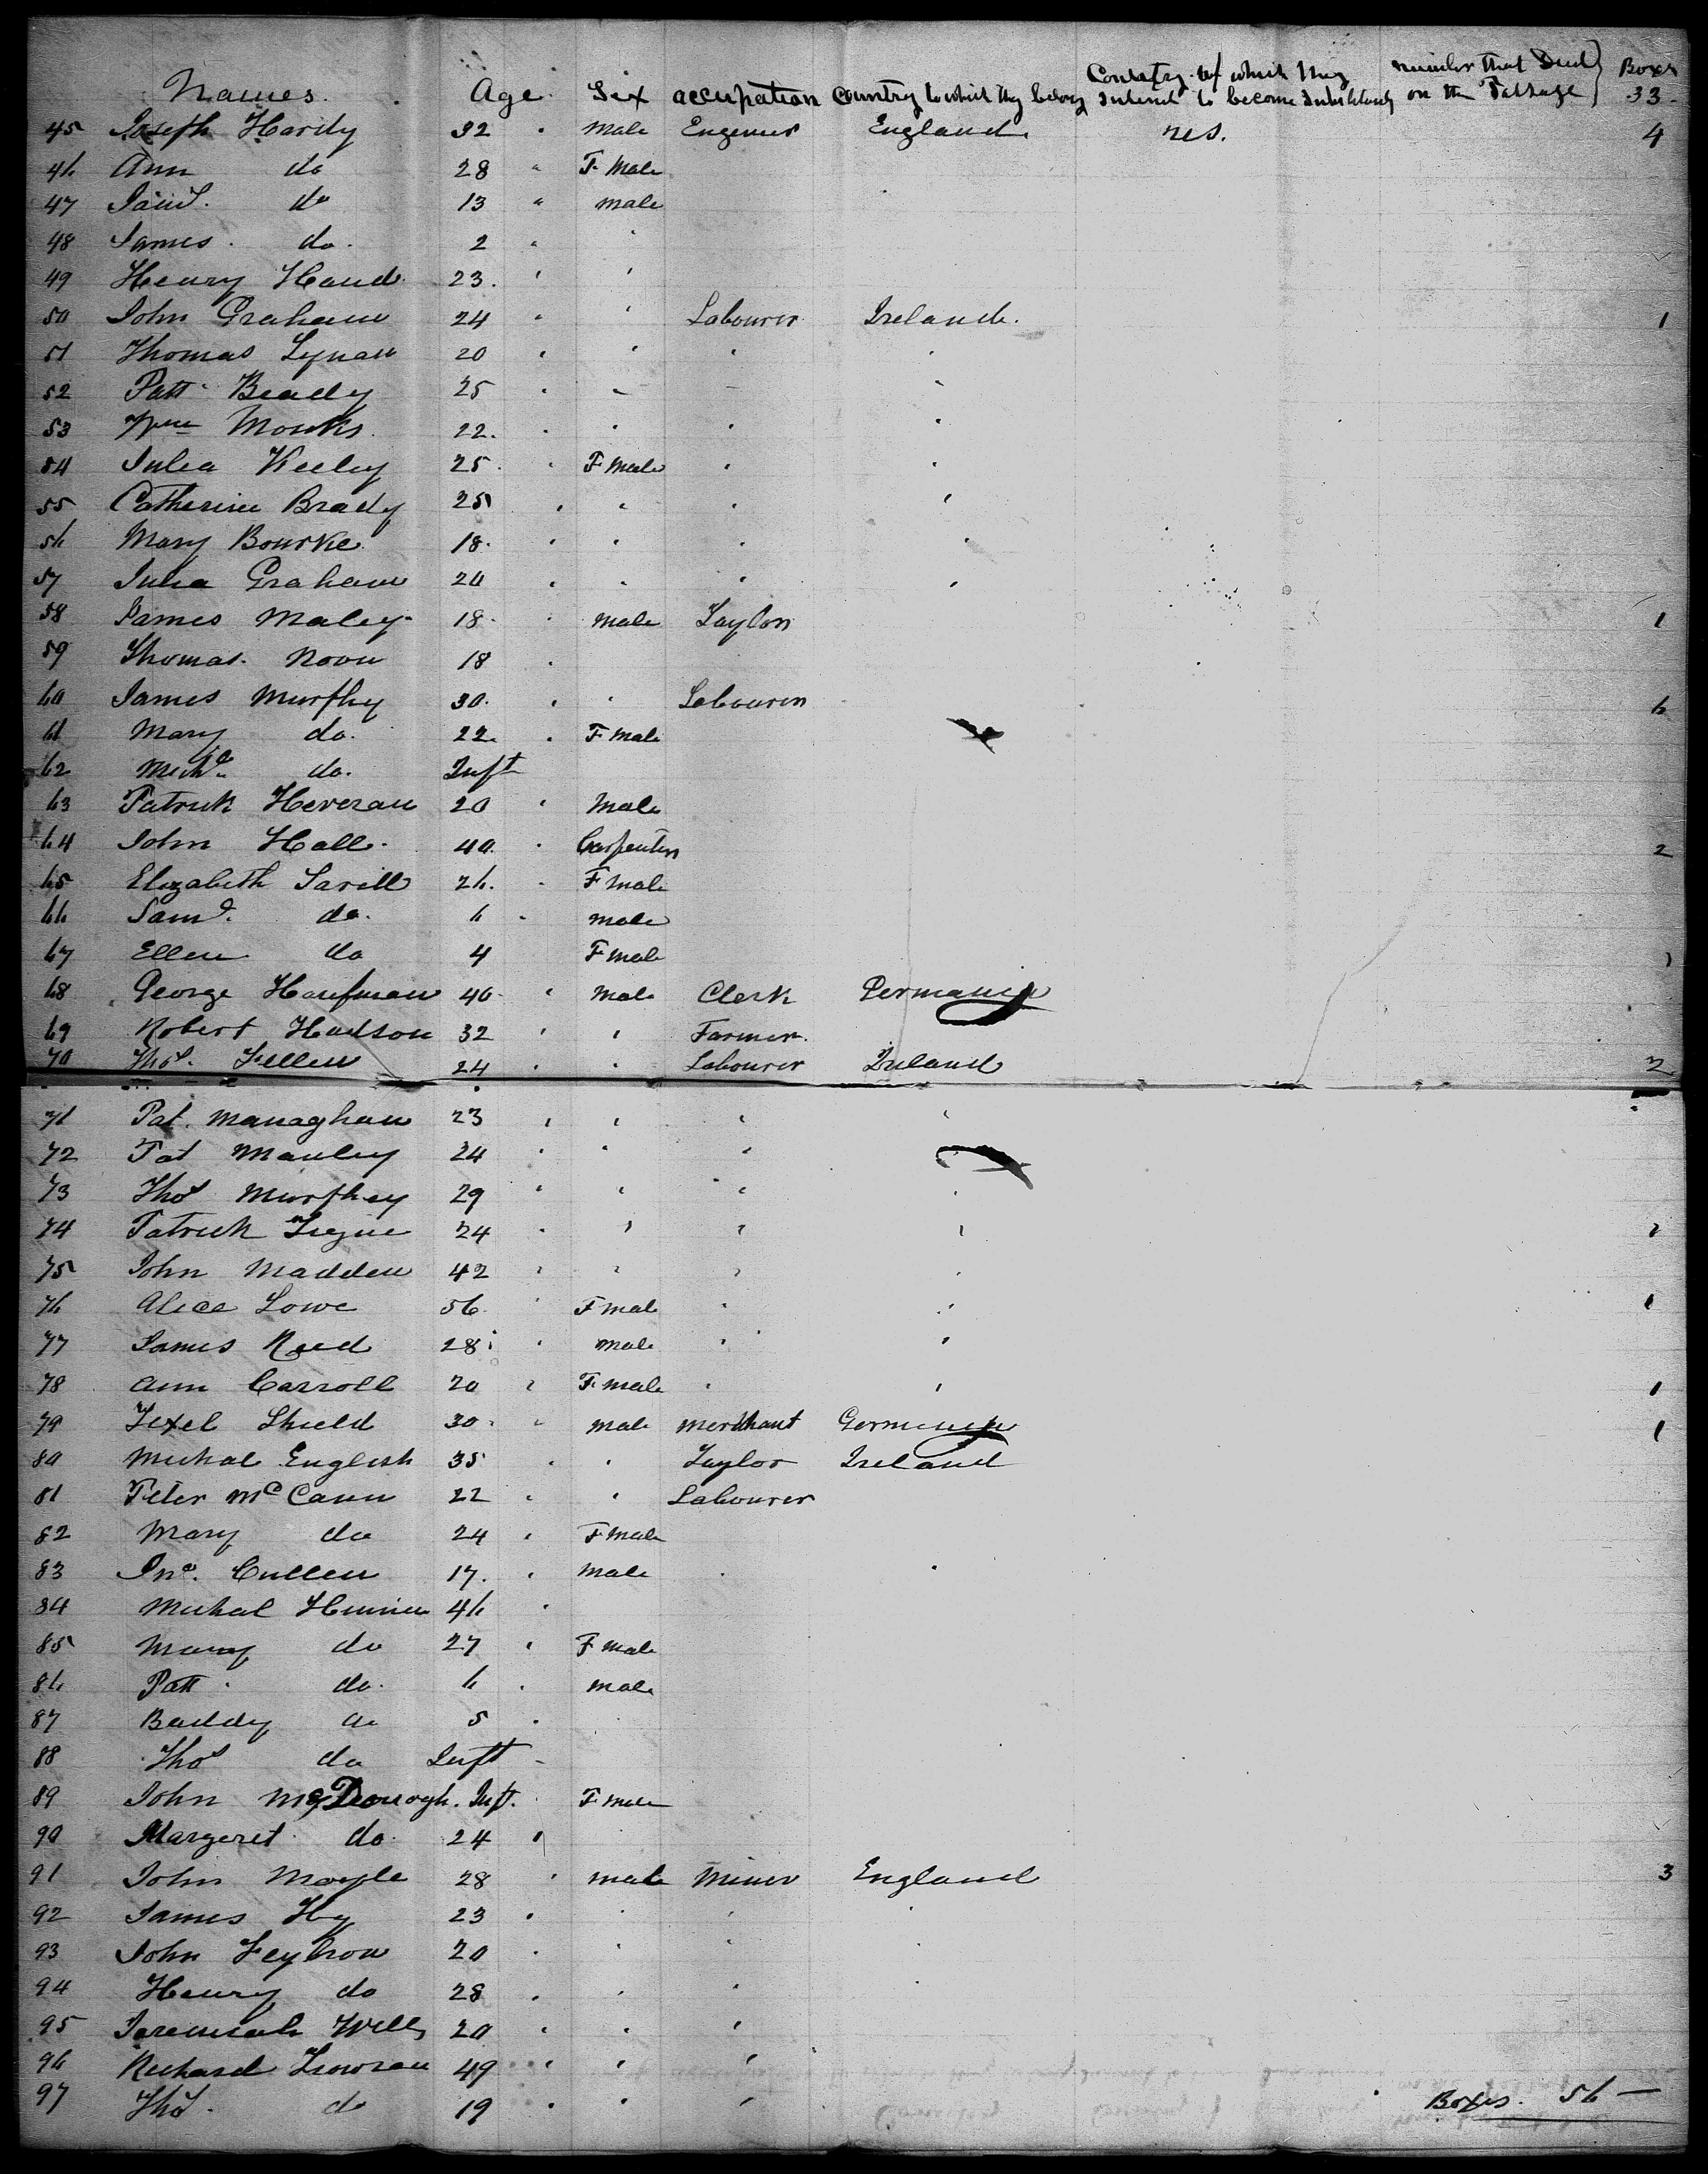 Names. Age. Sex occupation Country to which they belong Country of which they intend to become Inhabitants number that Died on the Passage Boxes 33.
45 Joseph Hardy 32 " male Engeneer England U.S. 4
46 Ann do 28 " F. Male
47 do 13 " male
48 James. do. 2 " "
49 Henry Hand 23. " "
50 John Graham 24 " " Labourer Ireland. 1
51 Thomas Lynan 20 " " " "
52 Patt Brady 25 " " " "
53 Wm Monks 22. " " " "
54 Julia Keeley 25. " F. male " "
55 Catherine Brady 25 " " " "
56 Mary Bourke 18. " " " "
57 Julia Graham 20 " " " "
58 James Maley 18. " male Taylor 1
59 Thomas. Noon 18 "
60 James Murphy 30. " " Labourer 6
61 Mary do. 22. " F male
62 Michl do. Inft
63 Patrick Heveran 20 " Male
64 John Hall. 40. " Carpenter 2
65 Elizabeth Savill 26. " F male
66 Saml. do. 6 " male
67 Ellen do 4 F male 1
68 George Haufman 40 " male Clerk Germania
69 Robert Hudson 32 " " Farmer.
70 Thos. Fellen 24 " " Labourer Ireland 2
71 Pat. Managhan 23 " " " "
72 Pat Manley 24 " " "
73 Thos Murphey 29 " " " "
74 Patrick 24 " " " " 1
75 John Madden 42 " " " "
76 Alice Lowe 56. " F male " " 1
77 James Reed 28 " male " "
78 Ann Carroll 20 " F. male " " 1
79 Shield 30. " male merchant Germania 1
80 Michal English 35 " " Taylor Ireland
81 Peter McCann 22 " " Labourer
82 Mary do 24 " F male
83 Jno. Cullen 17. " male " "
84 Michal 46 "
85 Mary do 27 " F male
86 Patt. do. 6 " male
87 Baddy do 5 "
88 Thos do Inft "
89 John McDonough. Inft. F. male
90 Margeret do. 24 "
91 John Moyle 28 " male Miner England 3
92 James 23 " " " "
93 John 20 " " " "
94 Henry do 28 " " " "
95 Jeremiah Wills 20 " " "
96 Richard 49 " " "
97 Thos. do 19 " " " Boxes. 56 —